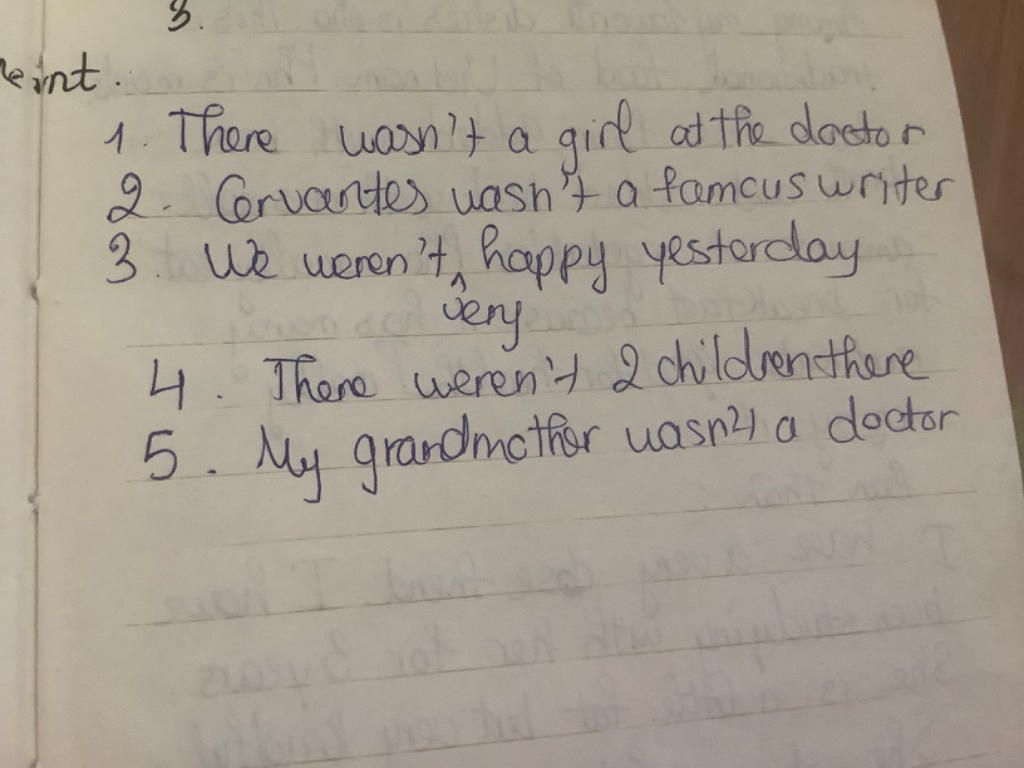 3.
1. There wasn't a girl at the doctor
2. Cervantes wasn't a famous writer
3. We weren't ^ happy yesterday
very
4. There weren't 2 children there
5. My grandmother wasn't a doctor